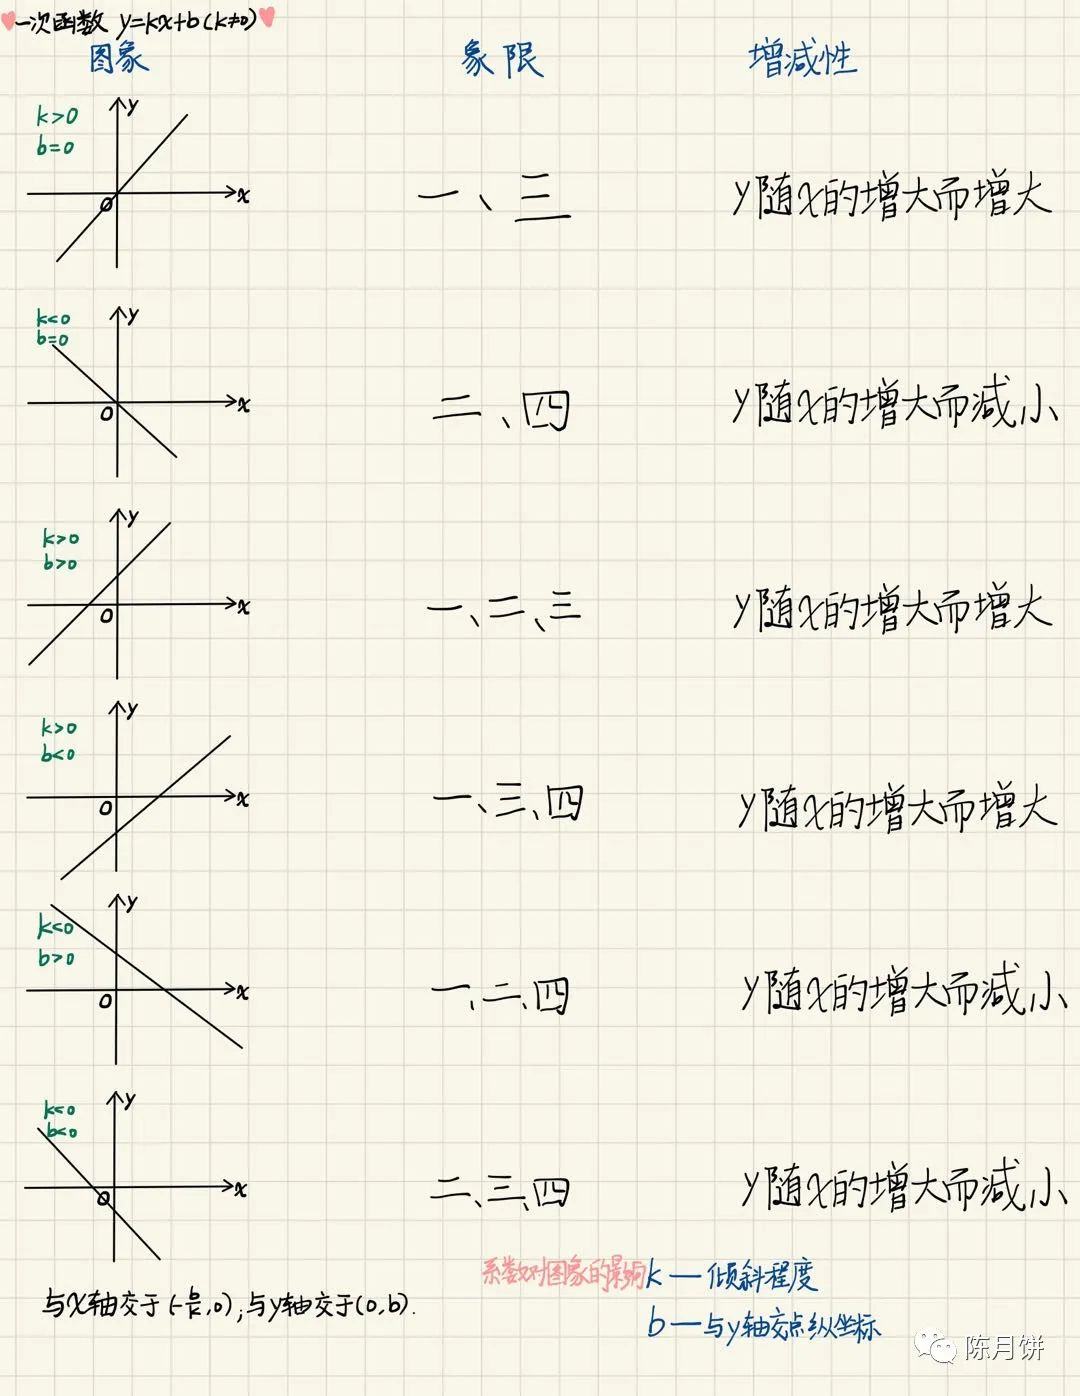 一次函数 y=kx+b(k≠0)
图象 象限 增减性
k>0
b=0
y
x
0
一、三
y随x的增大而增大
k<0
b=0
y
x
0
二、四
y随x的增大而减小
k>0
b>0
y
x
0
一、二、三
y随x的增大而增大
k>0
b<0
y
x
0
一、三、四
y随x的增大而增大
k<0
b>0
y
x
0
一、二、四
y随x的增大而减小
k<0
b<0
y
x
0
二、三、四
y随x的增大而减小
与x轴交于(-b/k,0);与y轴交于(0,b).
系数对图象的影响 k—倾斜程度
b—与y轴交点纵坐标
陈月饼